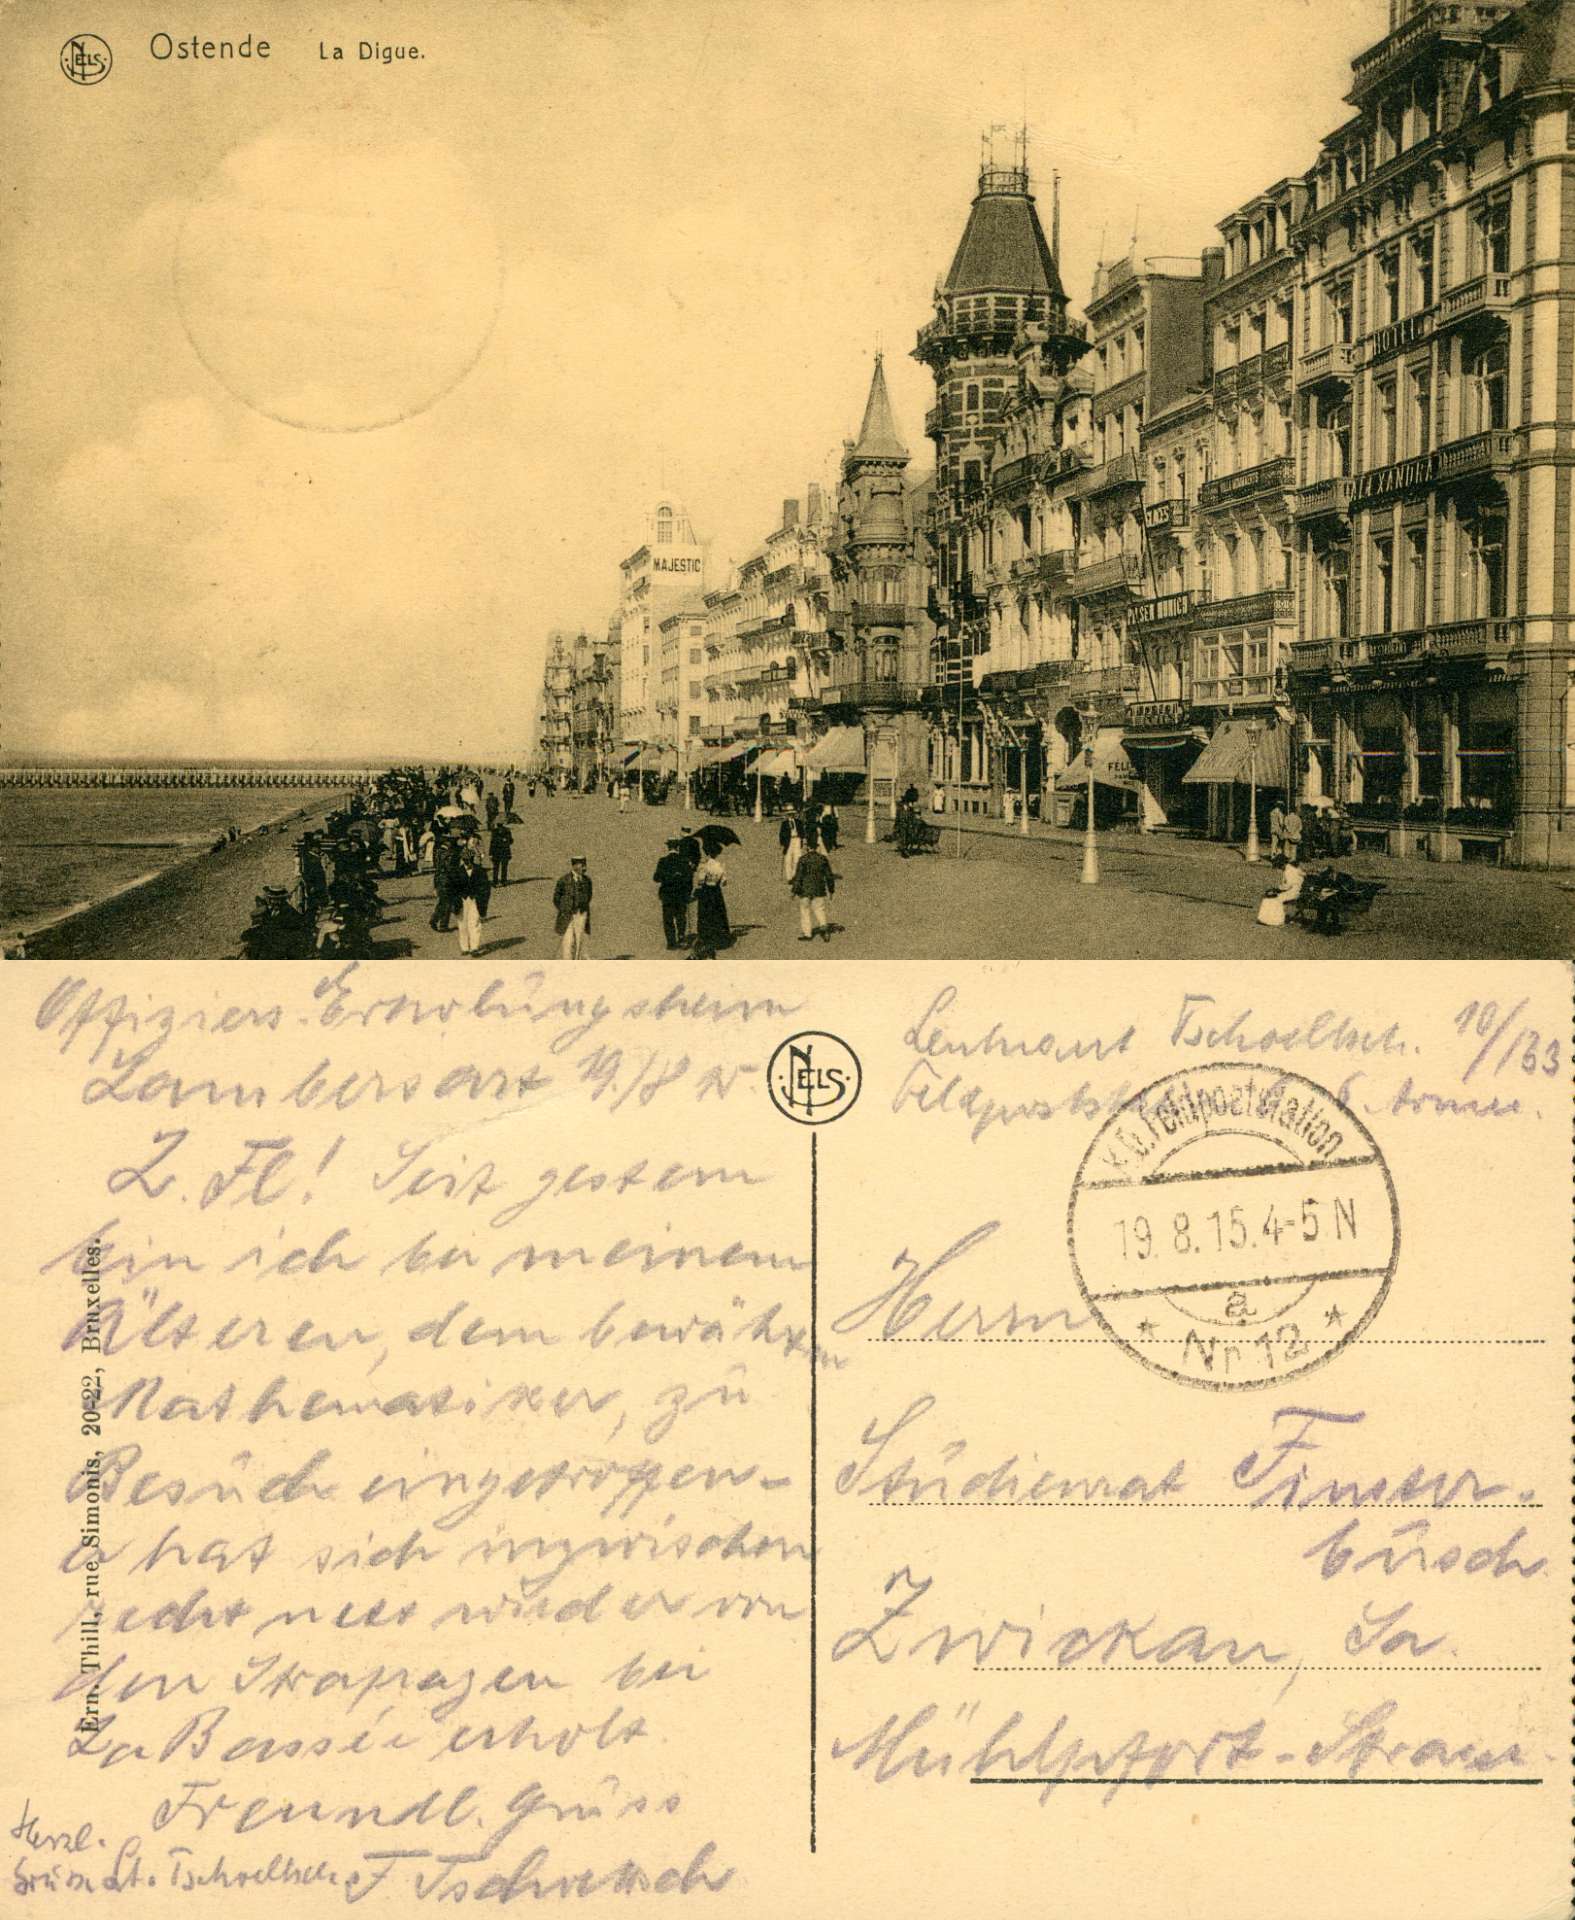 NELS
Ostende La Digue.
MAJESTIC
HOTEL
ALEXANDRA
Offiziers-Erholungsheim
Lambersart 19./8 15.
L. Fl! Seit gestern
bin ich bei meinem
Älteren, dem bewährten
Mathematiker, zu
Besuch eingetroffen -
er hat sich inzwischen
recht nett wieder von
den Strapazen bei
La Bassée erholt.
Freundl. Gruss
F Tschoeltsch
Herzl.
Gruss Lt. Tschoeltsch.
Ern. Thill, rue Simonis, 20-22, Bruxelles.
NELS
Leutnant Tschoeltsch. 10/133
6. Armee.
K.D. Feldpoststation
19. 8. 15. 4-5 N
a
* Nr. 12 *
Herrn
Studienrat Finster-
busch
Zwickau, Sa.
Mühlpfort-Strasse